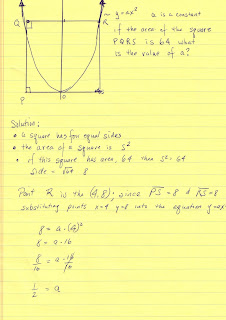 y=ax²
a is a constant
if the area of the square
PQRS is 64 what
is the value of a?
Q
R
P
O
Solution:
• a square has four equal sides
• the area of a square is S²
• if this square has area, 64 then S²=64
Side = √64 8
Point R is the (4,8); since PS=8 & RS=8
substituting points x=4 y=8 into the equation y=ax²
8 = a·(4)²
8 = a·16
8/16 = a·16/16
1/2 = a